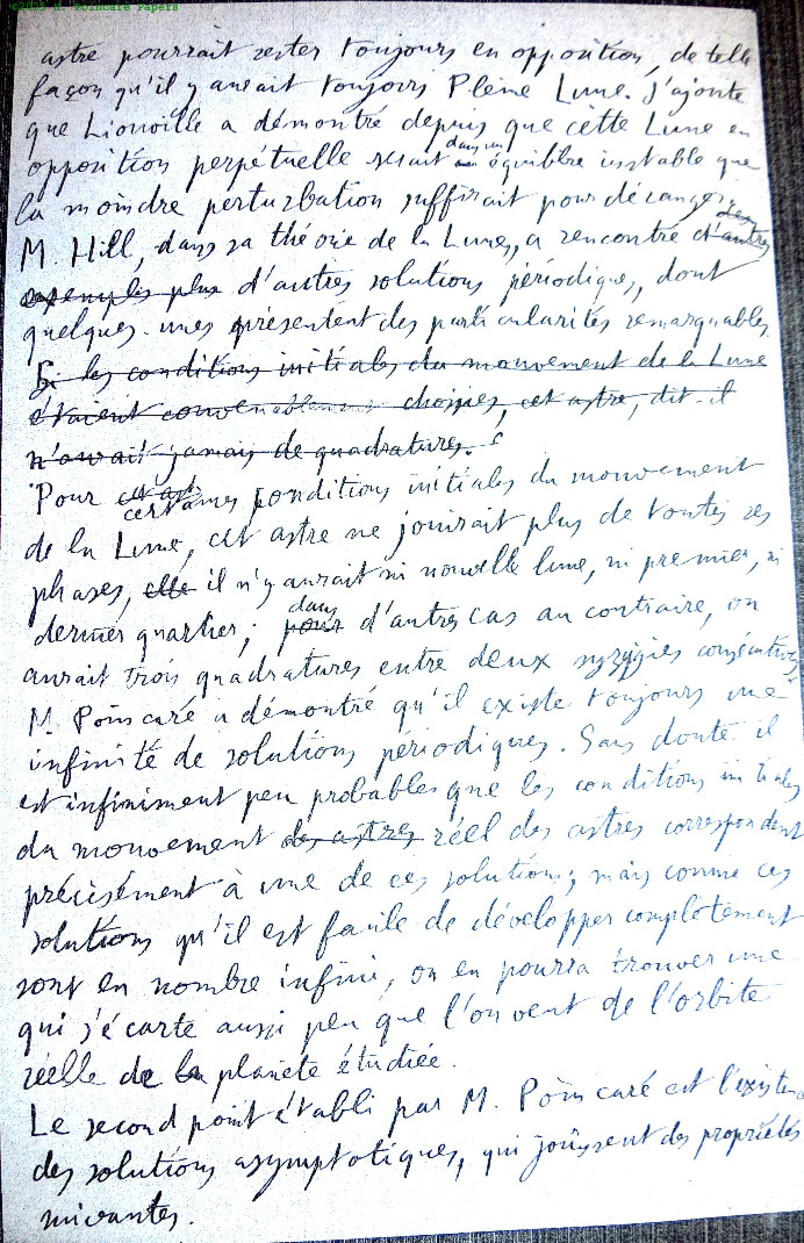 ©2023 H. Poincaré Papers
astre pourrait rester toujours en opposition, de telle
façon qu'il y aurait toujours Pleine Lune. J'ajoute
que Liouville a démontré depuis que cette Lune en
opposition perpétuelle serait dans un équilibre instable que
la moindre perturbation suffirait pour déranger.
M. Hill, dans sa théorie de la Lune, a rencontré d'autres des
exemples plus d'autres solutions périodiques, dont
quelques-unes présentent des particularités remarquables.
Si les conditions initiales du mouvement de la Lune
étaient convenablement choisies, cet astre, dit-il
n'aurait jamais de quadratures.
Pour certaines conditions initiales du mouvement
de la Lune, cet astre ne jouirait plus de toutes ses
phases, elle il n'y aurait ni nouvelle lune, ni premier, ni
dernier quartier; pour dans d'autres cas au contraire, on
aurait trois quadratures entre deux syzygies consécutives.
M. Poincaré a démontré qu'il existe toujours une
infinité de solutions périodiques. Sans doute il
est infiniment peu probables que les conditions initiales
du mouvement des astres réel des astres correspondent
précisément à une de ces solutions; mais comme ces
solutions qu'il est facile de développer complètement
sont en nombre infini, on en pourra trouver une
qui s'écarte aussi peu que l'on veut de l'orbite
réelle de la planète étudiée.
Le second point établi par M. Poincaré est l'existence
des solutions asymptotiques, qui jouissent des propriétés
suivantes.